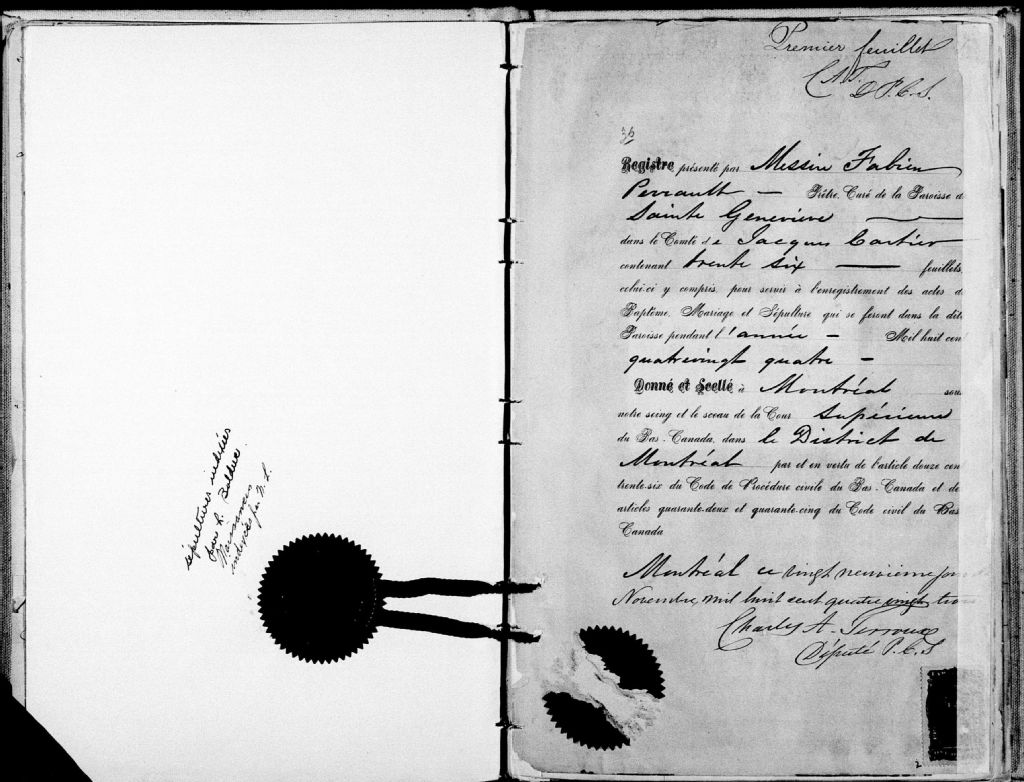 sépultures indexées
par R. Bolduc.
Naissances
indexées par M. L.
Premier feuillet
C.A.T.
D.P.C.S.
36
Registre présenté par Messire Fabien
Perrault — Prêtre, Curé de la Paroisse d
Sainte Geneviève —
dans le Comté de Jacques Cartier
contenant trente six — feuillets,
celui-ci y compris, pour servir à l'enregistrement des actes d
Baptême, Mariage et Sépulture qui se feront dans la dit
Paroisse pendant l'année — Mil huit cent
quatrevingt quatre —
Donné et Scellé à Montréal sous
notre seing et le sceau de la Cour Supérieure
du Bas-Canada, dans le District de
Montréal par et en vertu de l'article douze cen
trente-six du Code de Procédure civile du Bas-Canada et de
articles quarante-deux et quarante-cinq du Code civil du Bas
Canada
Montréal ce vingt neuvième jour
Novembre, mil huit cent quatre vingt trois
Charles A. Terroux
Député P.C.S
2